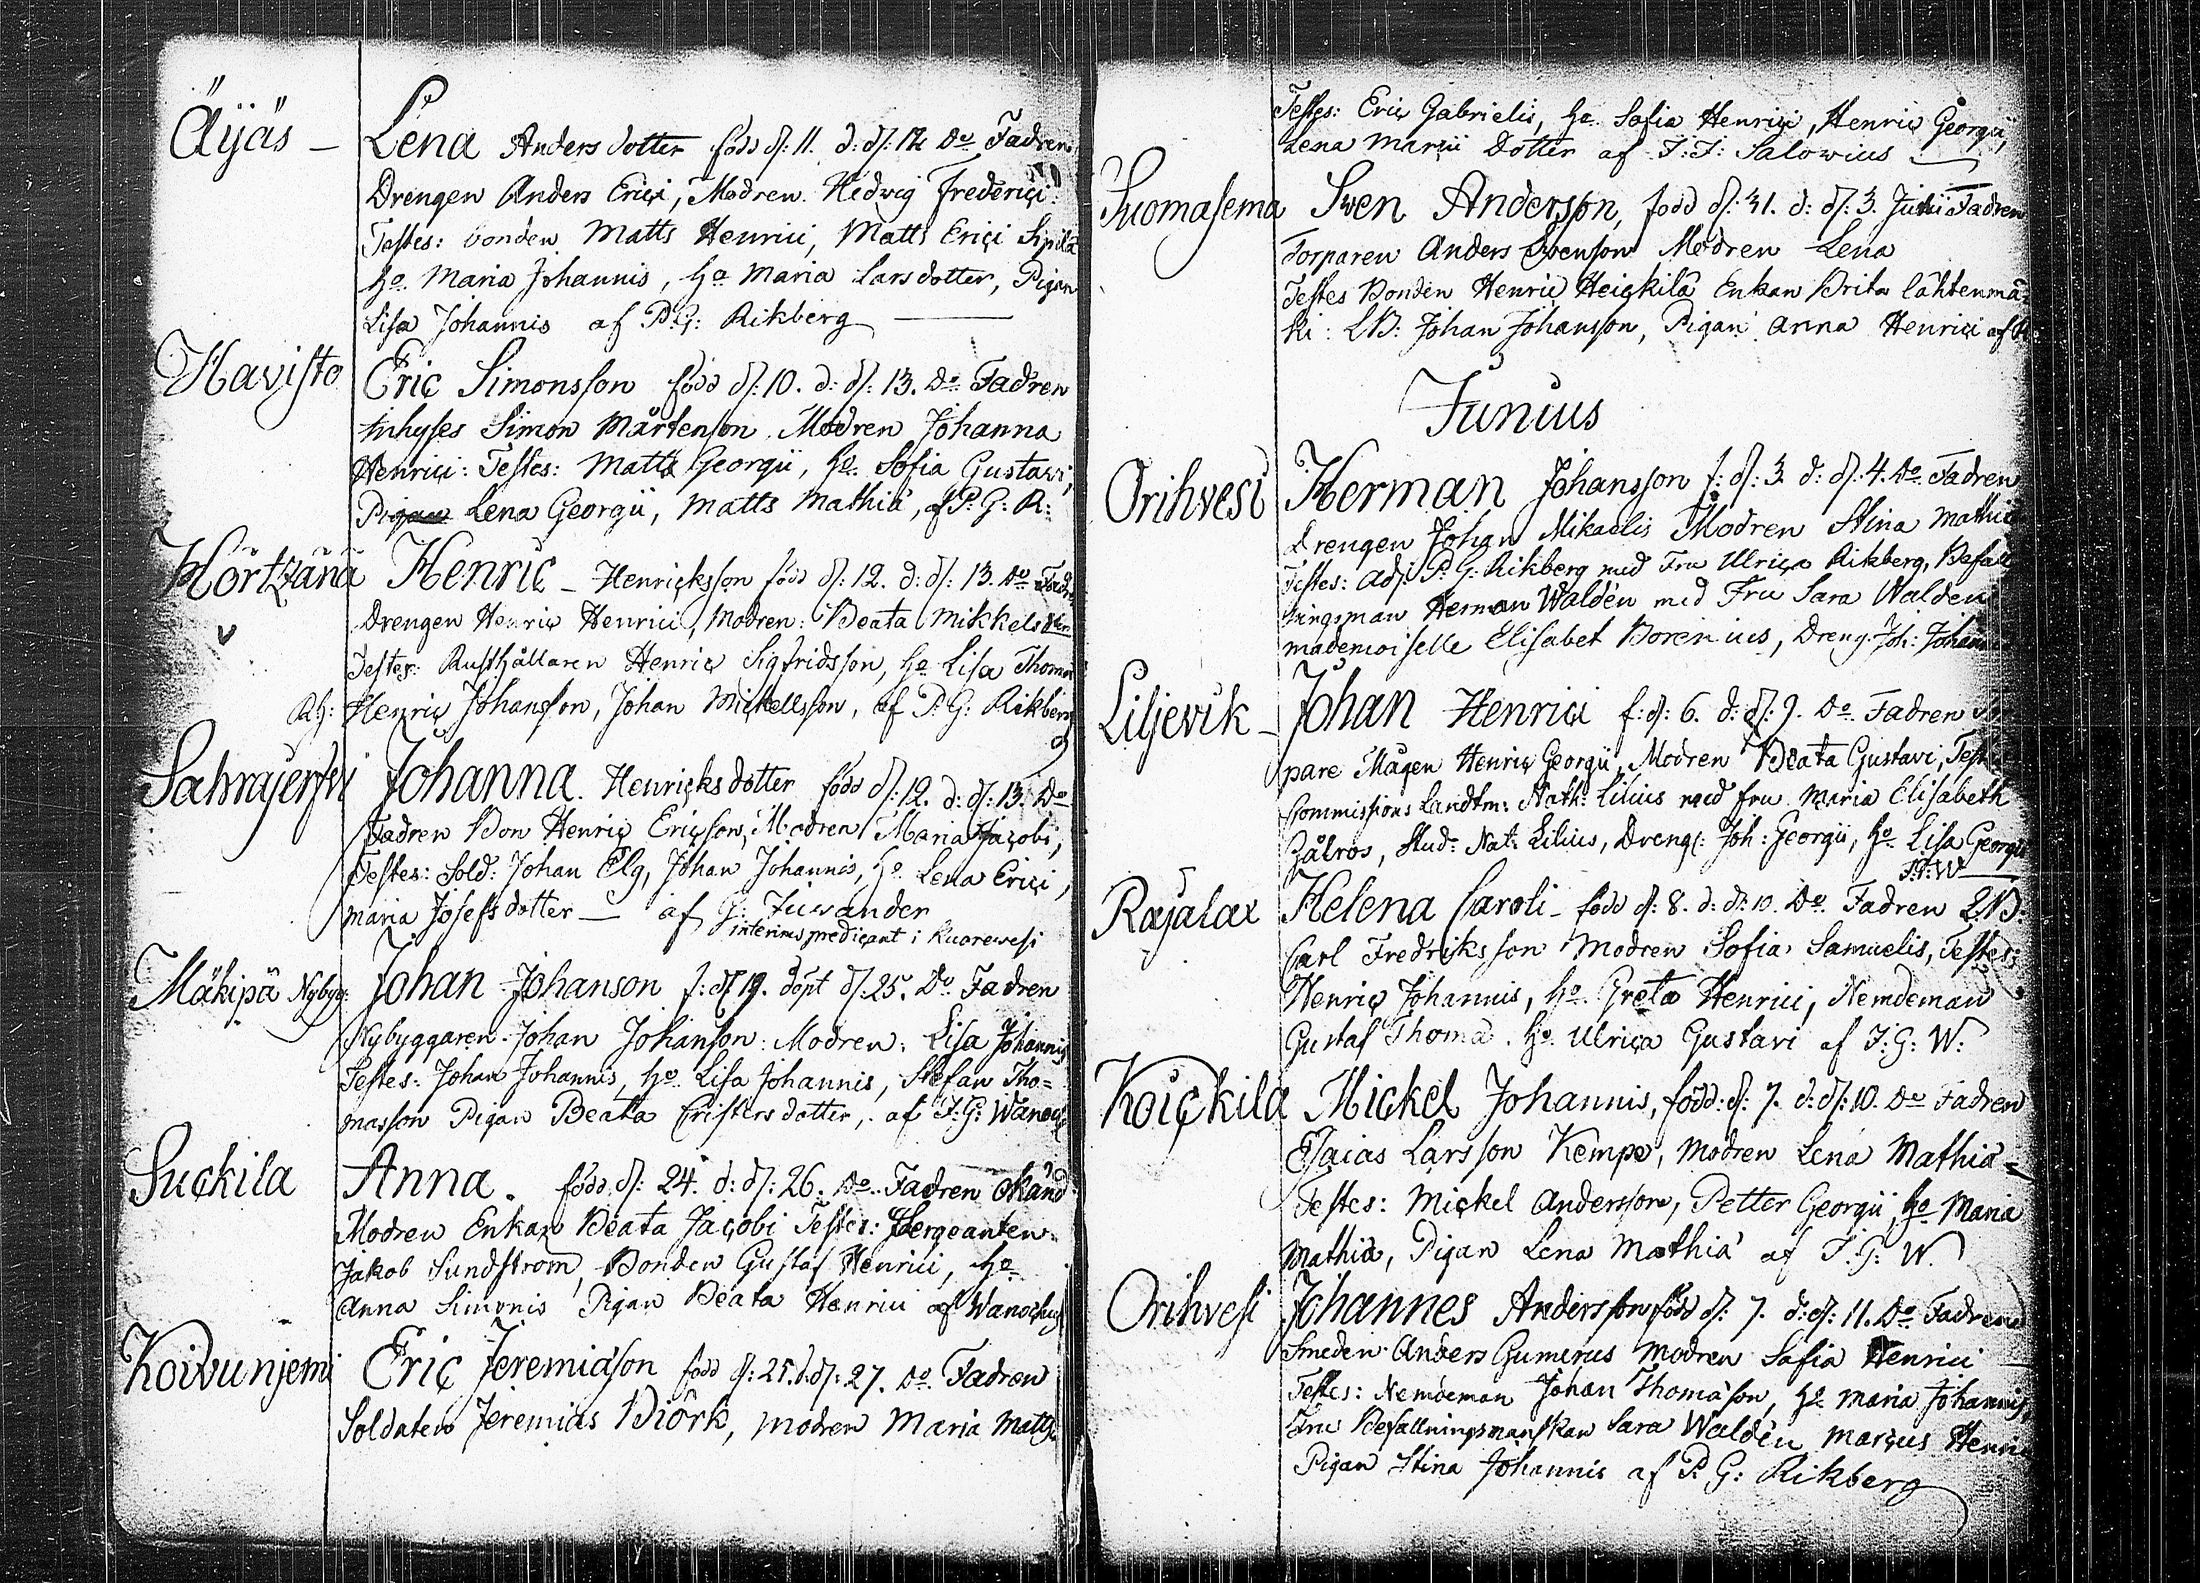 Äijäs – Lena Anders dotter född d: 11. d: d: 12 Do Fadren
Drengen Anders Erici, Modren Hedvig Frederici:
Testes: bonden Matts Henrici, Matts Erici Sipilä
Ho. Maria Johannis, Ho Maria Lars dotter, Pigan
Lisa Johannis af P: G: Rikberg
Havisto Eric Simonsson född d: 10. d: d: 13. Do Fadren
Inhyses Simon Mårtenson Modren Johanna
Henrici: Testes: Matts Georgii, Ho. Sofia Gustavi,
Lena Georgii, Matts Mathiä, af P: G: R:
Hörtzänä Henric – Henricksson född d: 12. d: d: 13. Do Fadren
Drengen Henric Henrici, Modren: Beata Mikkels
Testes: Rusthållaren Henric Sigfridsson, Ho Lisa Thomæ
Rh: Henric Johansson, Johan Mickellsson, af P. G: Rikberg
Sahrajerfvi Johanna. Henricks dotter född d: 12. d: d: 13. Do
Fadren Bon Henric Ericson, Modren Maria Jacobi,
Testes: Sold: Johan Elg, Johan Johannis, Ho Lena Erici,
Maria Josefs dotter – af G: Juvander
interims predicant i Kuorewesi
Mäkipä Nybyg: Johan Johanson f: d 19. döpt d: 25. Do Fadren
Nybyggaren Johan Johanson: Modren: Lisa Johannis
Testes: Johan Johannis, Ho Lisa Johannis, Stefan Tho=
masson Pigan Beata Cristers dotter, af J: G:
Suckila Anna. född d: 24. d: d: 26. Do Fadren Okänd
Modren Enkan Beata Jacobi Testes: Sergeanten
Jakob Sundström, Bonden Gustaf Henrici, Ho
Anna Simonis Pigan Beata Henrici af
Koivunjemi Eric Jeremiason född d: 25. d: d: 27. Do Fadren
Soldaten Jeremias Biörk, modren Maria Matts
Testes: Eric Gabrielis, Ho Sofia Henrici, Henric Georgii,
Lena Marcii Dotter af J: J: Salovius
Suomasema Sven Anderson, född d: 31. d: d: 3. Junii Fadren
Torparen Anders Svenson Modren Lena
Testes Bonden Henric Heickilä Enkan Brita Lähtenmä=
ki: LB: Johan Johanson, Pigan Anna Henrici af
Junius
Orihvesi Herman Johansson f: d: 3. d: d: 4. Do Fadren
Drengen Johan Mikaelis Modren Stina Mathiæ
Testes: Adj: P: G: Rikberg med Fru Ulrica Rikberg, Befall=
ningsman Herman Waldén med Fru Sara Walden
mademoiselle Elisabet Borenius, Dreng: Joh: Johannis
Liljevik – Johan Henrici f: d: 6. d: d: 9. Do Fadren
pare Mågen Henric Georgii, Modren Beata Gustavi, Testes
Commissions Landtm: Nath: Lilius med fru Maria Elisabeth
Zålros, Stud: Nat: Lilius, Dreng: Joh: Georgii, Ho Lisa Georgii
J: G: W
Rajalax Helena Caroli – född d: 8. d: d: 10. Do Fadren LB:
Carl Fredriksson Modren Sofia Samuelis, Testes:
Henric Johannis, Ho Greta Henrici, Nemdeman
Gustaf Thomæ. Ho Ulrica Gustavi af J: G: W:
Koickila Mickel Johannis, född: d: 7. d: d: 10. Do Fadren
Esaias Larsson Kempe, modren Lena Mathiä
Testes: Mickel Andersson, Petter Georgii, Ho Maria
Mathiä, Pigan Lena Mathiä af J. G: W.
Orihvesi Johannes Andersson född d: 7. d: d: 11. Do Fadren
Smeden Anders Gumerus Modren Sofia Henrici
Testes: Nemdeman Johan Thomäson, Ho Maria Johannis,
Fru Befallningsmanskan Sara Waldén Marcus Henrici
Pigan Stina Johannis af P: G: Rikberg